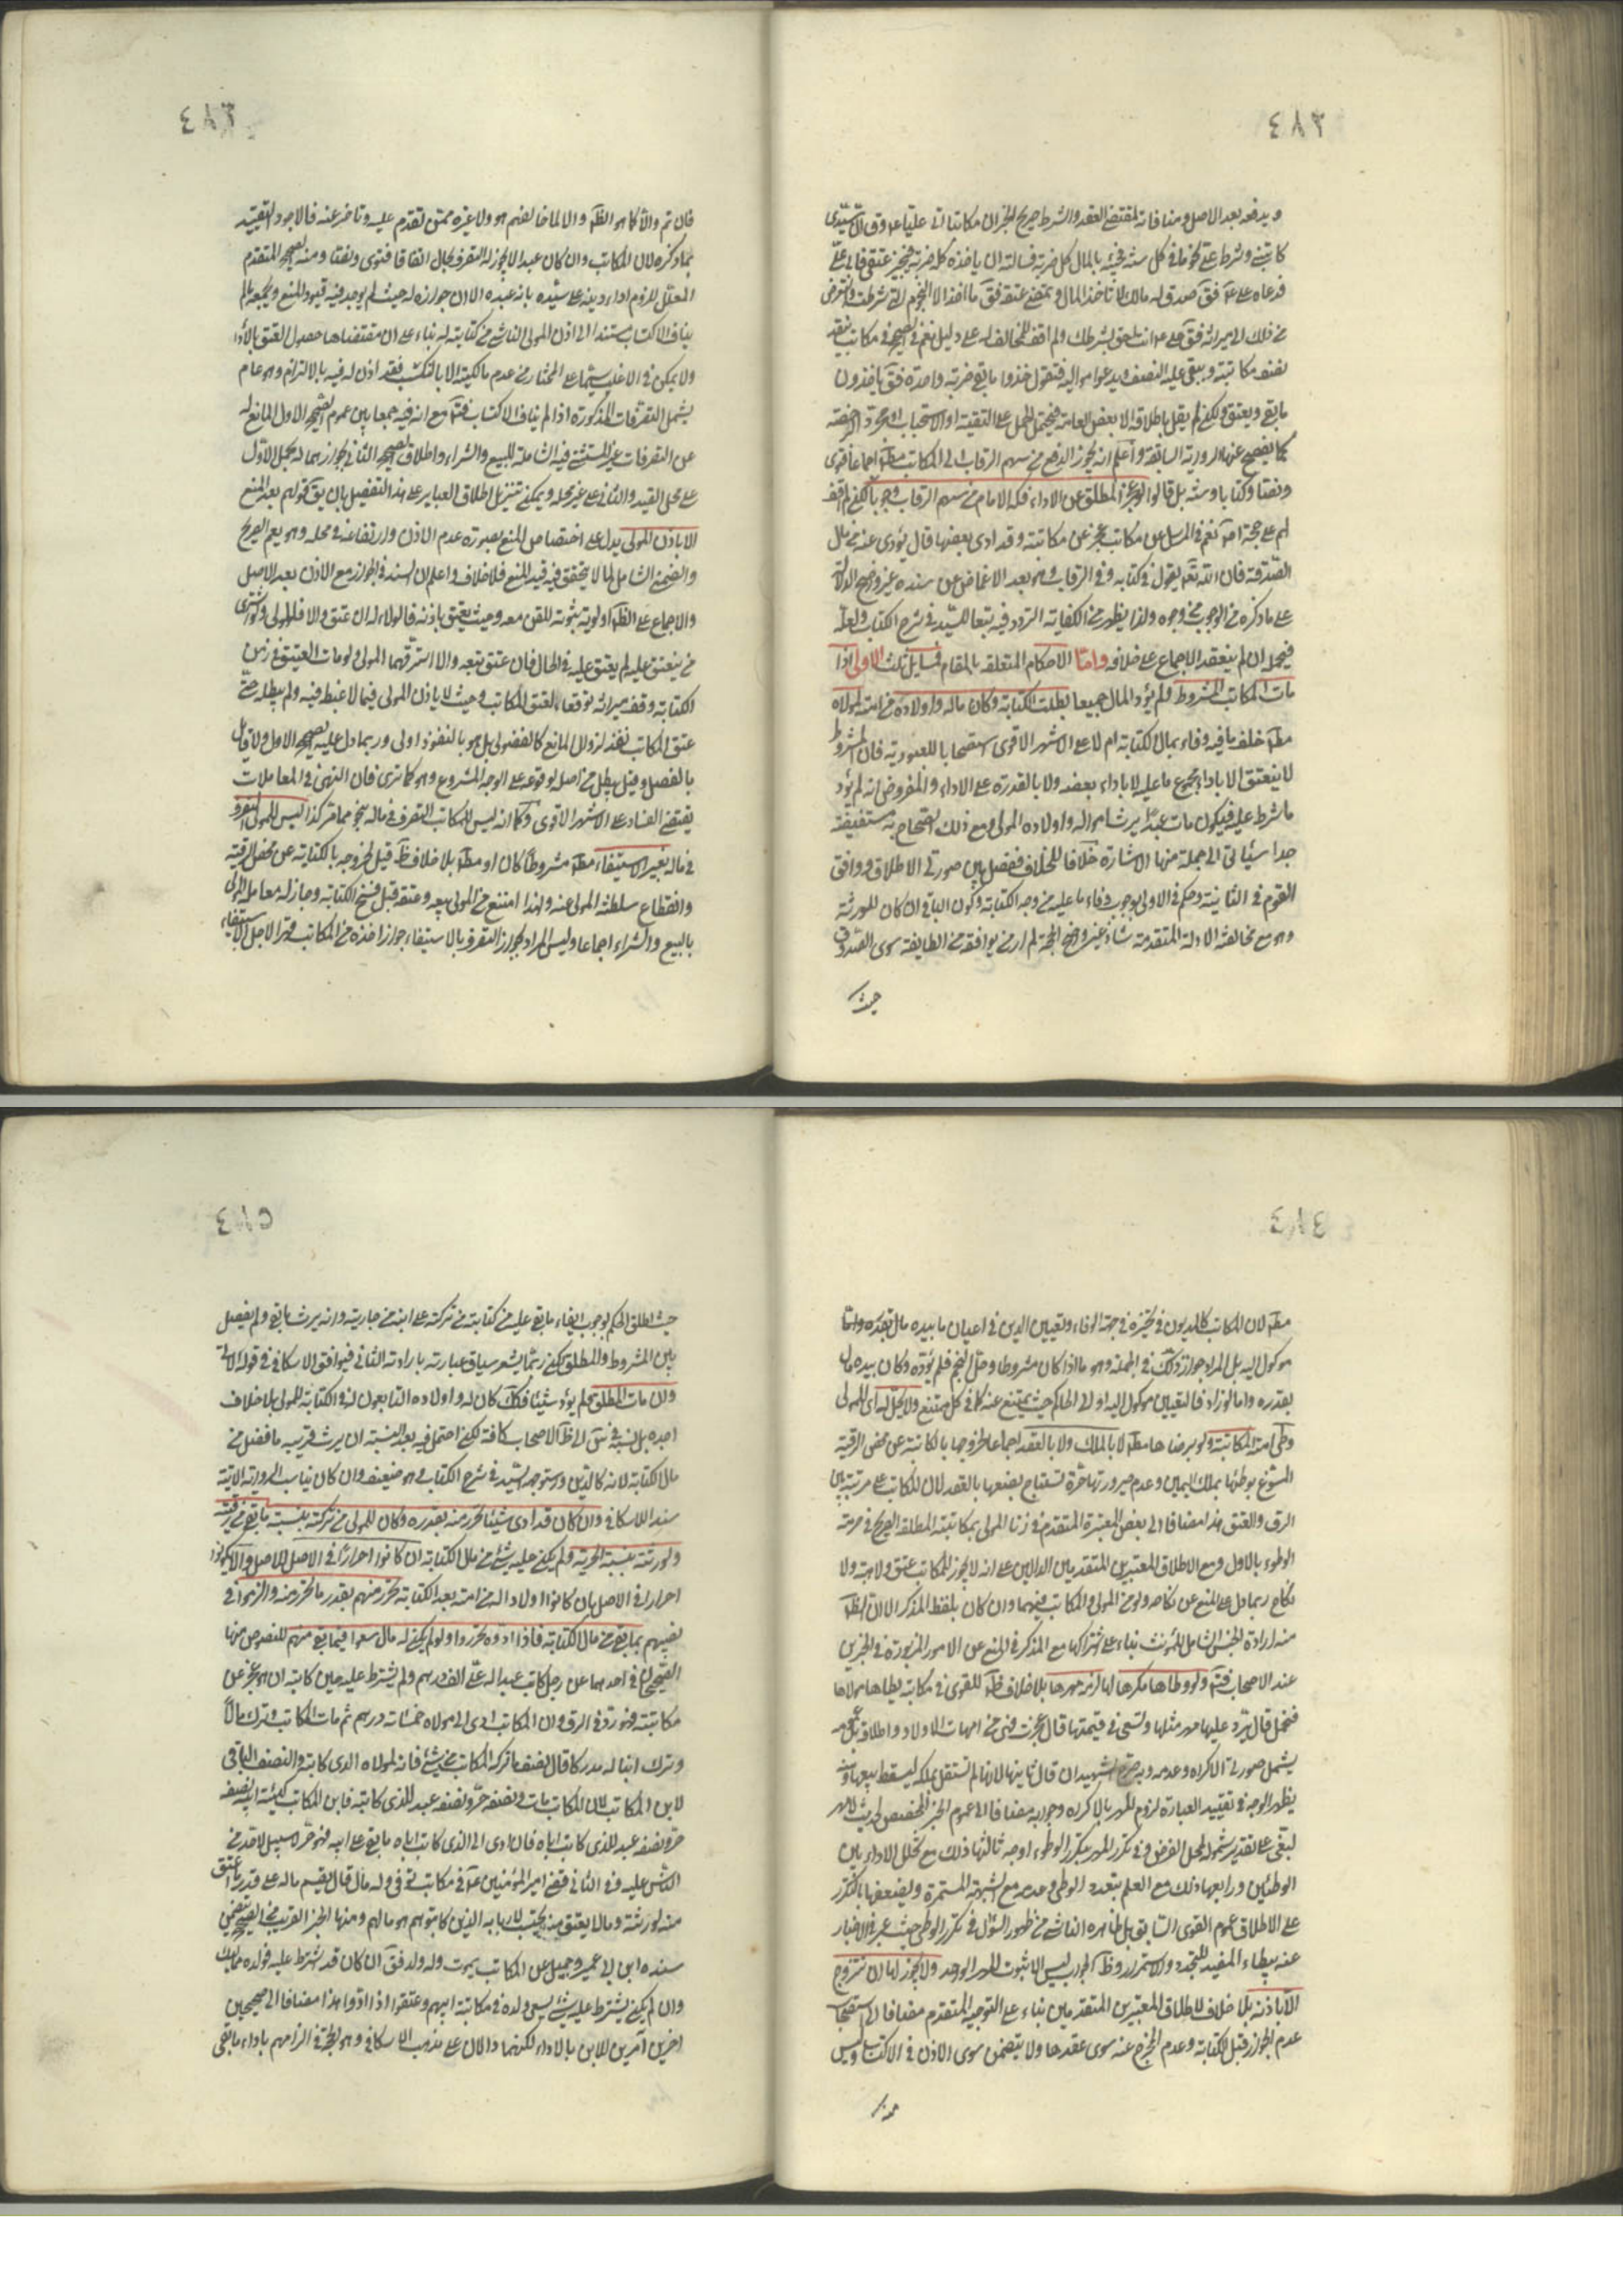 ٤٨٢
ويدفعه بعد الاصل ومنافاته لمقتضى العقد والشرط صريح الخبر ان مكاتبا اتى عليا ع وق ان سيدى
كاتبنى وشرط على نجوما فى كل سنة فجئته بالمال كله ضربة فسالته ان ياخذه كله ضربة ويجيز عتقى فابى على
فدعاه على ع فق صدق له مالك لا تاخذ المال وتمضى عتقه فق ما اخذ الا النجوم التى شرطت واتعرض
من ذلك الى ميراثه فق على ع انت احق بشرطك ولم اقف للمخالف له على دليل نعم فى الصحيح فى مكاتب ينقد
نصف مكاتبته ويبقى عليه النصف ويدعوا مواليه فيقول خذوا ما بقى ضربة واحدة فق ياخذون
ما بقى ويعتق ولكن لم يقل باطلاقه الا بعض العامة فيحتمل الحمل على التقية او الاستحباب او مجرد الرخصة
كما يفصح عنها الرواية السابقة واعلم انه يجوز الدفع من سهم الرقاب الى المكاتب مط اجماعا فتوى
ونصا وكتابا وسنة بل قالوا لو عجز المطلق عن الاداء فكه الامام من سهم الرقاب وجوبا لكنى لم اقف
لهم على حجة امر نعم فى المرسل عن مكاتب عجز عن مكاتبته وقد ادى بعضها قال يؤدى عنه من مال
الصدقة فان الله تع يقول فى كتابه وفى الرقاب وهو بعد الاغماض عن سنده غير واضح الدلالة
على ما ذكره من الوجوب من وجوه ولذا يظهر من الكفاية التردد فيه تبعا للسيد فى شرح الكتاب ولعله
فى محله ان لم ينعقد الاجماع على خلافه واما الاحكام المتعلقة بالمقام فمسايل ثلث الاولى اذا
مات المكاتب المشروط ولم يؤد المال جميعا بطلت الكتابة وكان ماله واولاده من امته لمولاه
مط خلف ما فيه وفاء بمال الكتابة ام لا على الاشهر الاقوى استصحابا للعبودية فان المشروط
لا ينعتق الا باداء جميع ما عليه لا باداء بعضه ولا بالقدرة على الاداء والمفروض انه لم يؤد
ما شرط عليه فيكون مات عبدا يرث امواله واولاده المولى ومع ذلك الصحاح به مستفيضة
جدا سياتى الى جملة منها الاشارة خلافا للخلاف ففصل بين صورتى الاطلاق ووافق
القوم فى الثانية وحكم فى الاولى بوجوب وفاء ما عليه من وجه الكتابة وكون الباقى ان كان للورثة
وهو مع مخالفته الادلة المتقدمة شاذ غير واضح الحجة لم ار من يوافقه من الطايفة سوى الصدوق
حيث
٤٨٣
فان تم والا كما هو الظ والا لما خالفهم هو ولا غيره ممن تقدم عليه وتاخر عنه فالاجود تقييد
بما ذكره لان المكاتب وان كان عبدا لا يجوز له التصرف بحال اتفاقا فتوى ونصا ومنه الصحيح المتقدم
المعلل للزوم اداء دينه على سيده بانه عبده الا ان جوازه له حيث لم يوجد فيه قيود المنع ويجمعه ما لم
يناف الاكتساب مستند الى اذن المولى الناشى من كتابته له بناء على ان مقتضاها حصول العتق بالاداء
ولا يمكن فى الاغلب سيما على المختار من عدم مالكيته الا بالتكسب فقد اذن له فيه بالالتزام وهو عام
يشمل التصرفات المذكورة اذا لم يناف الاكتساب فتم مع ان فيه جمعا بين عموم الصحيح الاول المانع له
عن التصرفات غير المستثنى فيه الشاملة للبيع والشراء واطلاق الصحيح الثانى بجوازهما له بحمل الاول
على محل القيد والثانى على غير محله ويمكن تنزيل اطلاق العباير على هذا التفصيل بان يق قولهم بعد المنع
الا باذن المولى يدل على اختصاص المنع بصورة عدم الاذن وارتفاعه فى محله وهو يعم الصريح
والضمنى الشامل لما لا يتحقق فيه قيد المنع فلا خلاف واعلم ان السند فى الجواز مع الاذن بعد الاصل
والاجماع على الظ اولوية ثبوته للقن معه وحيث يعتق باذنه فالولاء له ان عتق والا فللمولى ولو اشترى
من ينعتق عليه لم يعتق عليه فى الحال فان عتق تبعه والا استرقهما المولى ولو مات العتيق فى زمن
الكتابة وقف ميراثه توقعا لعتق المكاتب وحيث لا ياذن المولى فيما لا غبطة فيه ولم يبطله حتى
عتق المكاتب نفذ لزوال المانع كالفضولى بل هو بالنفوذ اولى وربما دل عليه الصحيح الاول ولا قايل
بالفصل وقيل يبطل من اصله لوقوعه على غير الوجه المشروع وهو كما ترى فان النهى فى المعاملات
يقتضى الفساد على الاشهر الاقوى وكما انه ليس للمكاتب التصرف فى ماله بنحو مما مر كذا ليس للمولى التصرف
فى ماله بغير الاستيفاء مط مشروطا كان او مط بلا خلاف ظ قيل لخروجه بالكتابة عن محض الرقية
وانقطاع سلطنة المولى عنه ولهذا امتنع من المولى بيعه وعتقه قبل فسخ الكتابة وجاز له معاملة المولى
بالبيع والشراء اجماعا وليس المراد بجواز التصرف بالاستيفاء جواز اخذه من المكاتب قهرا لاجل الاستيفاء
٤٨٤
مط لان المكاتب كالمديون فى تخيره فى جهة الوفاء وتعيين الدين فى اعيان ما بيده مال بقدره وانما
موكول اليه بل المراد جواز ذلك فى الجملة وهو ما اذا كان مشروطا وحل النجم فلم يؤده وكان بيده مال
بقدره واما لو زاد فالتعيين موكول اليه او الى الحاكم حيث يمتنع عنه كما فى كل ممتنع ولا يحل له اى للمولى
وطى امته المكاتبة ولو برضاها مط لا بالملك ولا بالعقد اجماعا لخروجها بالكتابة عن محض الرقية
المسوغ بوطئها بملك اليمين وعدم صيرورتها حرة تستباح بضعها بالعقد لان المكاتب على مرتبة بين
الرق والعتق هذا مضافا الى بعض المعتبرة المتقدم فى زنا المولى بمكاتبته المطلقة الصريح فى حرمة
الوطوء بالاول ومع الاطلاق المعتبرين المتقدمين الدالين على انه لا يجوز للمكاتب عتق ولا هبة ولا
نكاح ربما دل على المنع عن نكاحه ولو من المولى والمكاتب فيهما وان كان بلفظ المذكر الا ان الظ
منه ارادة الجنس الشامل للمونث بناء على اشتراكها مع المذكر فى المنع عن الامور المزبورة فى الخبرين
عند الاصحاب فتم ولو وطاها مكرها لها لزمه مهرها بلا خلاف ظ للقوى فى مكاتبة يطاها مولاها
فتحمل قال يرد عليها مهر مثلها وتسعى فى قيمتها فان عجزت فهى من امهات الاولاد واطلاقه بل عمومه
يشمل صورتى الاكراه وعدمه وبه صرح الشهيدان قال ثانيهما لانها لم تستقل بملكه ليسقط ببغيها ومنه
يظهر الوجه فى تقييد العبارة لزوم المهر بالاكراه وجوابه مضافا الى عموم الخبر المخصص لحديث لا مهر
لبغى على تقدير شموله لمحل الفرض وفى تكرر المهر بتكرر الوطوء اوجه ثالثها ذلك مع تخلل الاداء بين
الوطئين ورابعها ذلك مع العلم بتعدد الوطى وعدمه مع الشبهة المستمرة ويضعفها بالتكرر
على الاطلاق عموم القوى السابق بل ظاهره الناشى من ظهور السؤال فى تكرر الوطى حيث عبر فى الاخبار
عنه بيطاء المفيد للتجدد والاستمرار وظ الجواب ليس الا ثبوت المهر الواحد ولا يجوز لها ان تتزوج
الا باذنه بلا خلاف لاطلاق المعتبرين المتقدمين بناء على التوجيه المتقدم مضافا الى استصحاب
عدم الجواز قبل الكتابة وعدم المخرج عنه سوى عقدها ولا يتضمن سوى الاذن فى الاكتساب وليس
٤٨٥
حيث اطلق الحكم بوجوب ايفاء ما بقى عليه من كتابته من تركته على ابنه من جاريته وانه يرث ما بقى ولم يفصل
بين المشروط والمطلق لكن ربما يشعر سياق عبارته بارادته الثانى فيوافق الاسكافى فى قوله الاتى
وان مات المطلق ولم يؤد شيئا فكك كان له واولاده التابعون له فى الكتابة للمولى بلا خلاف
اجده بل نسبه فى لك الى ظ الاصحاب كافة لكن احتمل فيه بعد النسبة ان يرث قريبه ما فضل من
مال الكتابة لانه كالدين واستوجهه السيد فى شرح الكتاب وهو ضعيف وان كان يناسب الرواية الاتية
سند الاسكافى وان كان قد ادى شيئا تحرر منه بقدره وكان للمولى من تركته بنسبة ما بقى من رقيته
ولورثته بنسبة الحرية ولم يكن عليه شئ من مال الكتابة ان كانوا احرارا فى الاصل للاصل والا يكونوا
احرارا فى الاصل بان كانوا اولادا له من امته بعد الكتابة تحرر منهم بقدر ما تحرر منه والزموا فى
نصيبهم بما بقى من مال الكتابة فاذا ادوه تحرروا ولو لم يكن له مال سعوا فيما بقى منهم للنصوص منها
الصحيحان فى احدهما عن رجل كاتب عبدا له على الف درهم ولم يشترط عليه حين كاتبه ان هو عجز عن
مكاتبته فهو رد فى الرق وان المكاتب ادى الى مولاه خمسمائة درهم ثم مات المكاتب وترك مالا
وترك ابنا له مدركا قال نصف ما تركه المكاتب من شئ فانه لمولاه الذى كاتبه والنصف الباقى
لابن المكاتب لان المكاتب مات ونصفه حر ونصفه عبد للذى كاتبه فابن المكاتب كهيئة ابيه نصفه
حر ونصفه عبد للذى كاتب اباه فان ادى الى الذى كاتب اباه ما بقى على ابيه فهو حر لا سبيل لاحد من
الناس عليه وفى الثانى قضى امير المؤمنين ع فى مكاتب توفى وله مال قال يقسم ماله على قدر ما اعتق
منه لورثته وما لم يعتق منه يحتسب لاربابه الذين كاتبوهم هو مالهم ومنها الخبر القريب من الصحيح بتضمن
سنده ابن ابى عمير وجميل عن المكاتب يموت وله ولد فق ان كان قد شرط عليه فولده مماليك
وان لم يكن يشترط عليه شئ يسعى ولده فى مكاتبة ابيهم وعتقوا اذا ادوا هذا مضافا الى صحيحين
اخرين آمرين للابن بالاداء لكنهما دالان على مذهب الاسكافى وهو الحجة فى الزامهم باداء ما بقى